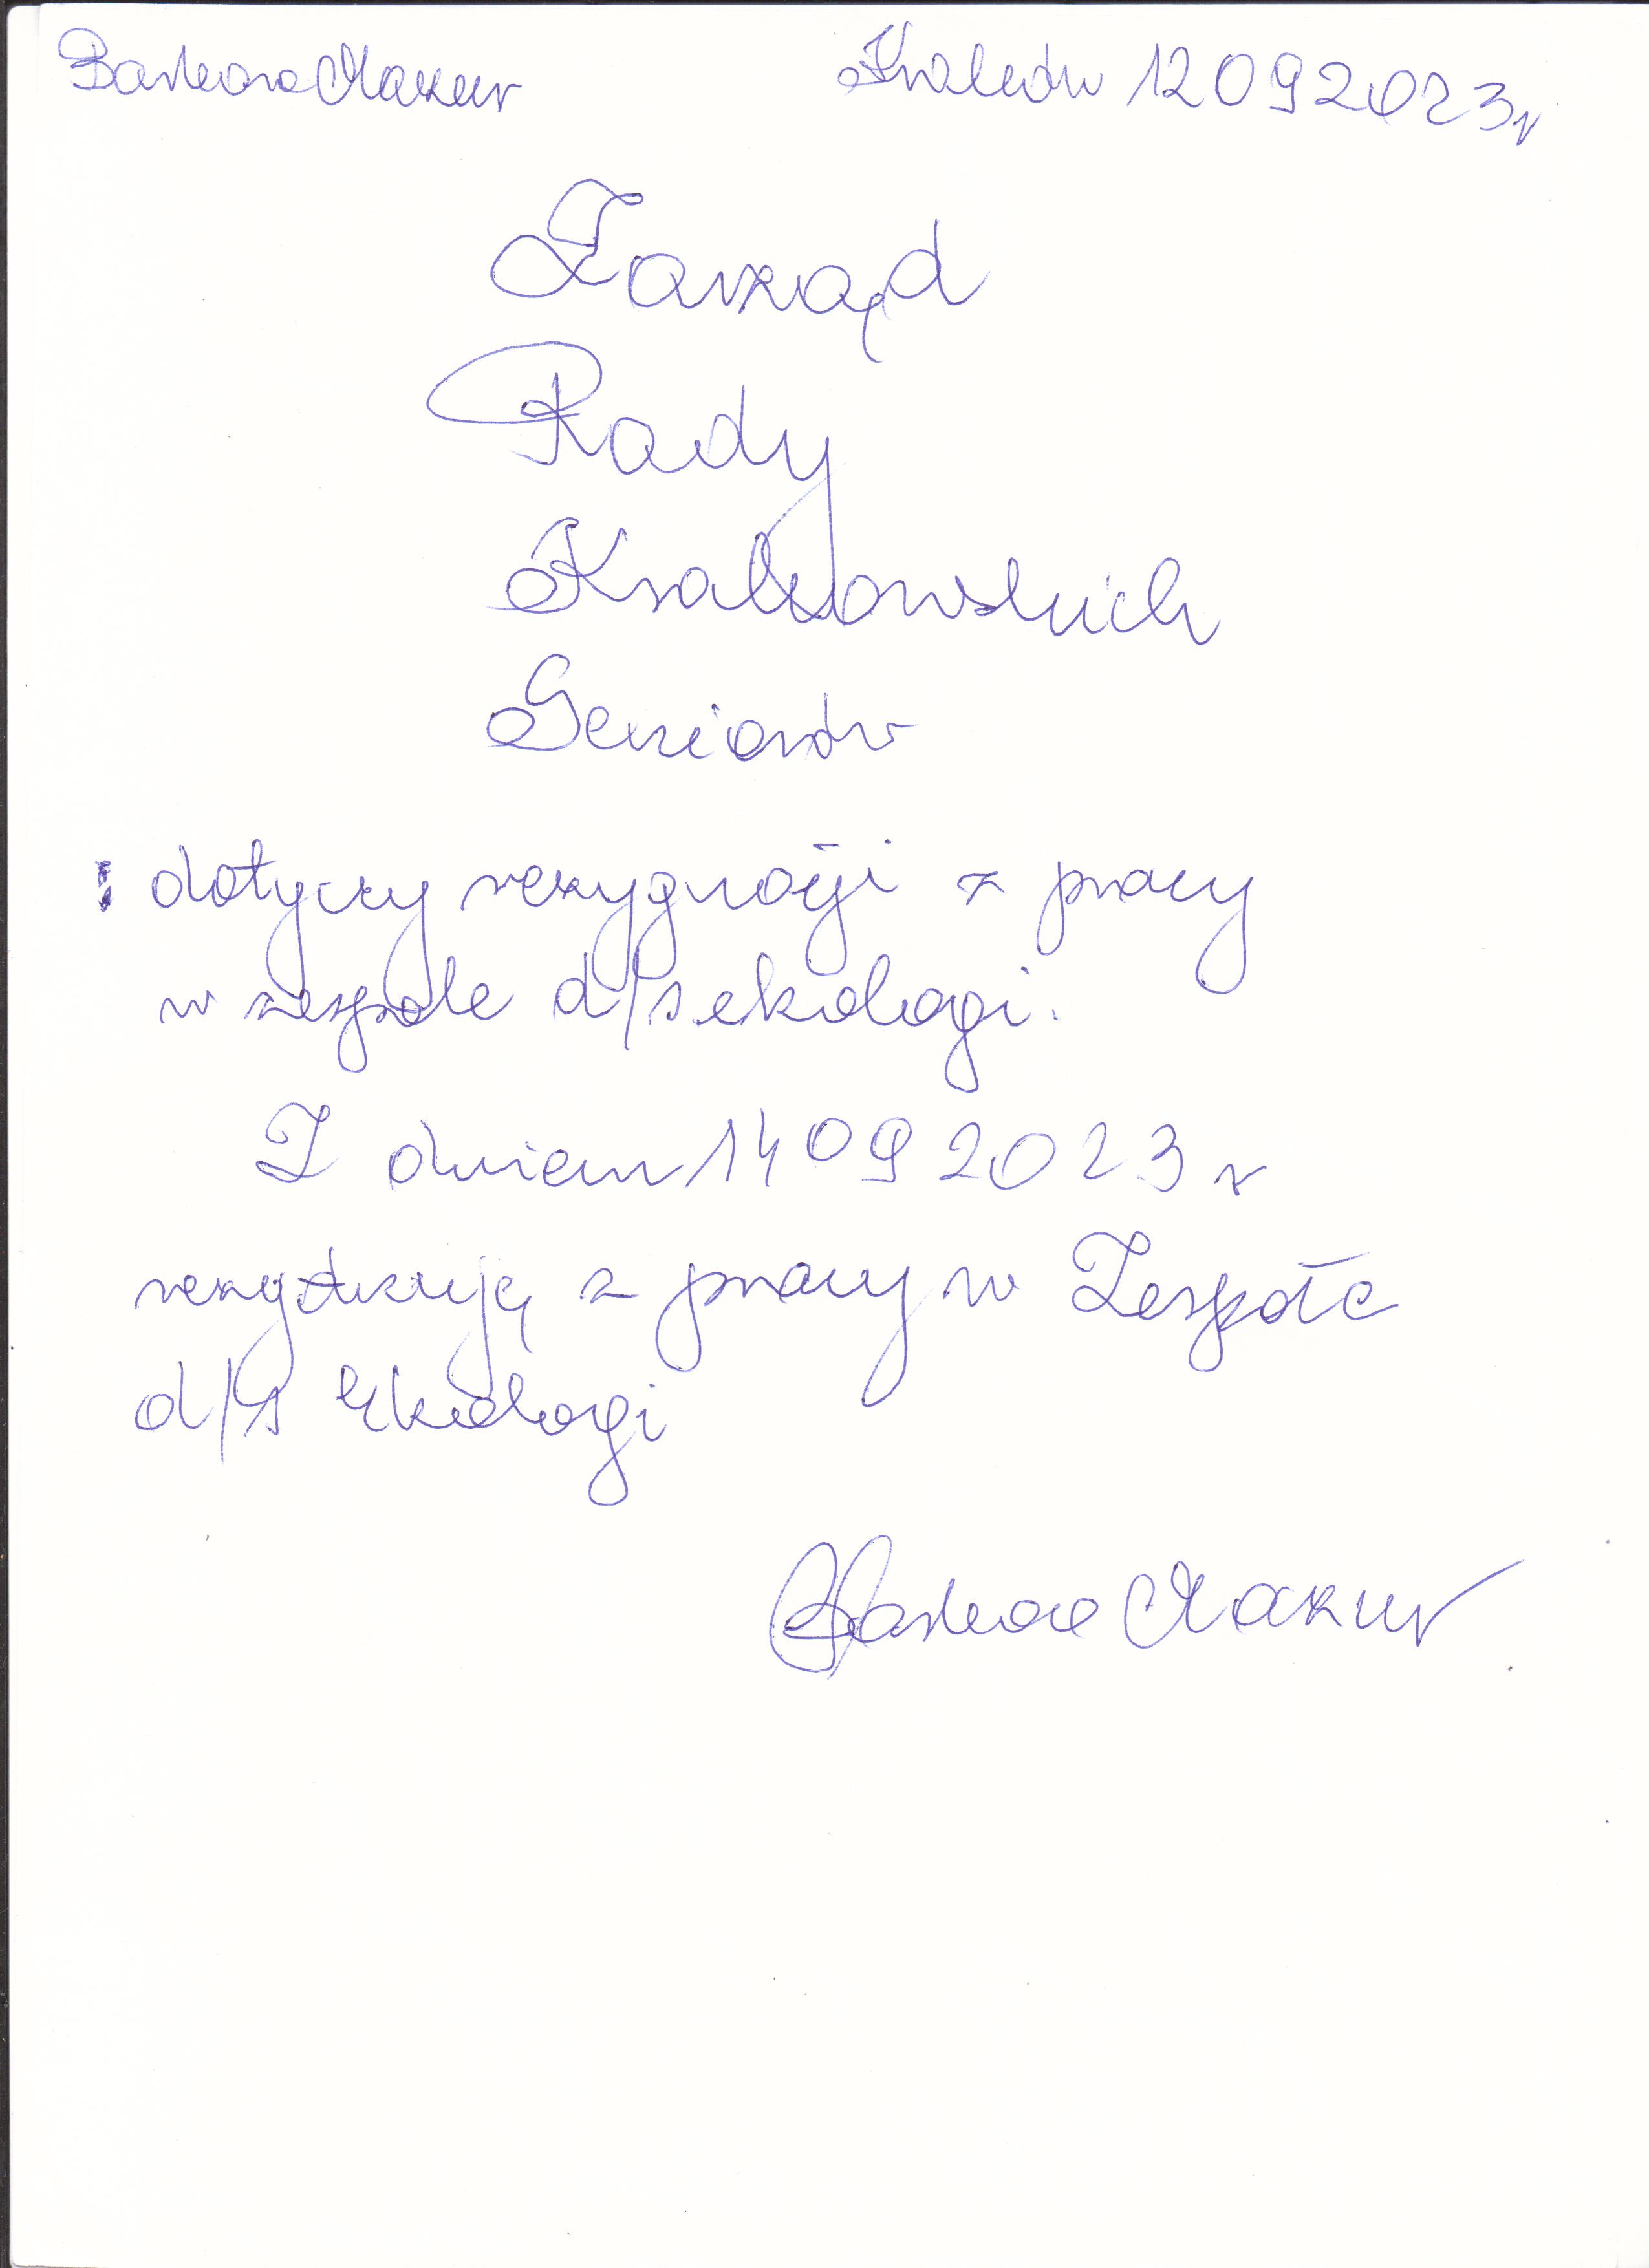 Barbara Mazur Kraków 12 09 2023r
Zarząd
Rady
Krakowskich
Seniorów
: dotyczy rezygnacji z pracy
w zespole d/s ekologi.
Z dniem 14 09 2023 r
rezygnuję z pracy w Zespole
d/s Ekologi
Barbara Mazur